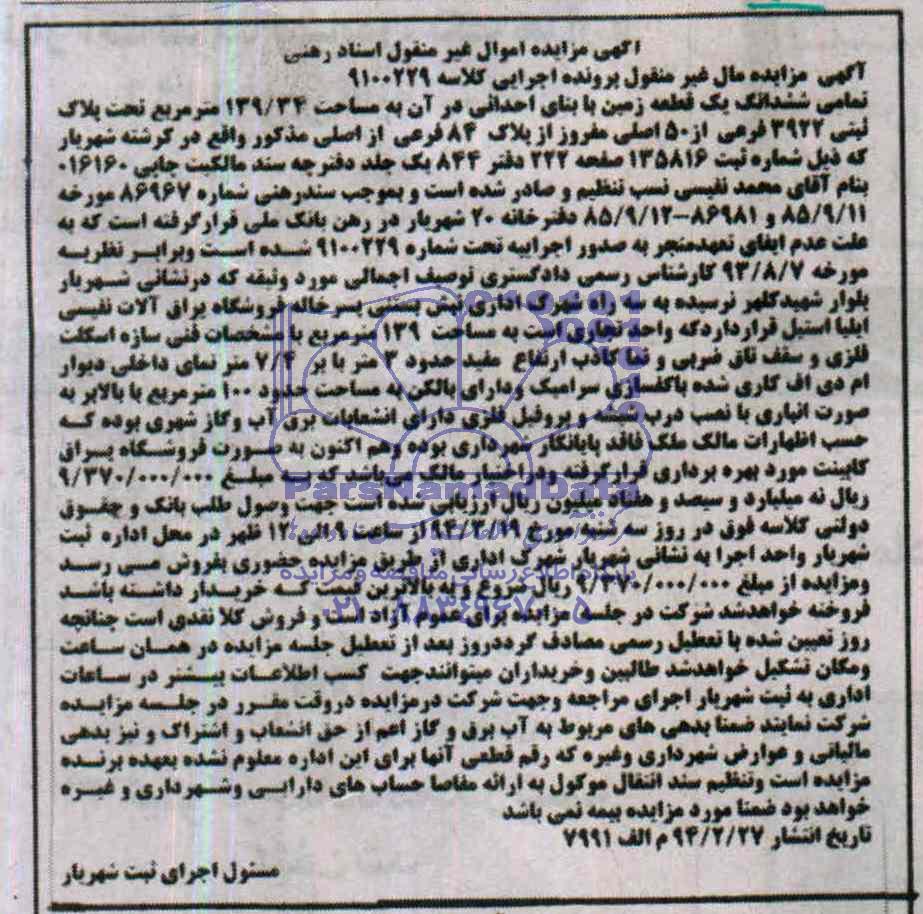 آگهی مزایده اموال غیر منقول اسناد رهنی
آگهی مزایده مال غیر منقول پرونده اجرایی کلاسه ۹۱۰۰۲۲۹
تمامی ششدانگ یک قطعه زمین با بنای احداثی در آن به مساحت ۱۳۹/۳۴ مترمربع تحت پلاک
ثبتی ۳۹۲۲ فرعی از۵۰ اصلی مفروز از پلاک ۸۴ فرعی از اصلی مذکور واقع در کرشته شهریار
که ذیل شماره ثبت ۱۳۵۸۱۶ صفحه ۲۲۲ دفتر ۸۴۴ بک جلد دفترچه سند مالکیت چاپی ۰۱۶۱۶۰
بنام آقای محمد نفیسی نسب تنظیم و صادر شده است و بموجب سندرهنی شماره ۸۶۹۶۷ مورخه
۸۵/۹/۱۱ و ۸۶۹۸۱-۸۵/۹/۱۲ دفترخانه ۲۰ شهریار در رهن بانک ملی قرارگرفته است که به
علت عدم ایفای تعهدمنجر به صدور اجراییه تحت شماره ۹۱۰۰۲۲۹ شده است وبرابر نظریه
مورخه ۹۳/۸/۷ کارشناس رسمی دادگستری توصیف اجمالی مورد وثیقه که درنشانی شهریار
بلوار شهیدکلهر نرسیده به سه راه شهرک اداری نبش بستنی پسرخاله فروشگاه یراق آلات نفیسی
ایلیا استیل قرارداردکه واحد تجاری است به مساحت ۱۳۹ مترمربع با مشخصات فنی سازه اسکلت
فلزی و سقف تاق ضربی و نما کاذب ارتفاع مفید حدود ۳ متر با بر ۷/۴ متر نمای داخلی دیوار
ام دی اف کاری شده باکفسازی سرامیک ودارای بالکن به مساحت حدود ۱۰۰ مترمربع با بالابر به
صورت انباری با نصب درب شیشه و پروفیل فلزی دارای انشعابات برق آب وگاز شهری بوده که
حسب اظهارات مالک ملک فاقد پایانکار شهرداری بوده وهم اکنون به صورت فروشگاه یراق
کابینت مورد بهره برداری قرارگرفته ودر اختیار مالک می باشد که به مبلغ ۹/۳۷۰/۰۰۰/۰۰۰
ریال نه میلیارد و سیصد و هفتاد میلیون ریال ارزیابی شده است جهت وصول طلب بانک و حقوق
دولتی کلاسه فوق در روز سه شنبه مورخ ۹۴/۳/۱۹ از ساعت ۹ الی ۱۲ ظهر در محل اداره ثبت
شهریار واحد اجرا به نشانی شهریار شهرک اداری از طریق مزایده حضوری بفروش می رسد
ومزایده از مبلغ ۹/۳۷۰/۰۰۰/۰۰۰ ریال شروع و به بالاترین قیمت که خریدار داشته باشد
فروخته خواهدشد شرکت در جلسه مزایده برای عموم آزاد است و فروش کلا نقدی است چنانچه
روز تعیین شده با تعطیل رسمی مصادف گرددروز بعد از تعطیل جلسه مزایده در همان ساعت
ومکان تشکیل خواهدشد طالبین وخریداران میتوانندجهت کسب اطلاعات بیشتر در ساعات
اداری به ثبت شهریار اجرای مراجعه وجهت شرکت درمزایده دروقت مقرر در جلسه مزایده
شرکت نمایند ضمنا بدهی های مربوط به آب برق و گاز اعم از حق انشعاب و اشتراک و نیز بدهی
مالیاتی و عوارض شهرداری وغیره که رقم قطعی آنها برای این اداره معلوم نشده بعهده برنده
مزایده است وتنظیم سند انتقال موکول به ارائه مفاصا حساب های دارایی وشهرداری و غیره
خواهد بود ضمنا مورد مزایده بیمه نمی باشد
تاریخ انتشار ۹۴/۲/۲۷ م الف ۷۹۹۱
مسئول اجرای ثبت شهریار
ParsNamadData
پایگاه اطلاع رسانی مناقصه و مزایده
۰۲۱-۸۸۳۴۹۶۷۰-۵